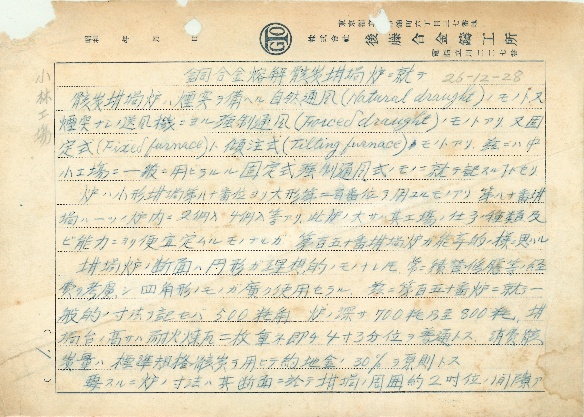 昭和 年 月 日
GIO
株式会社 後藤合金鋳工所
小林工場
銅合金熔解骸炭坩堝炉ニ就テ 26-12-28
骸炭坩堝炉ハ煙突ヲ備ヘル自然通風(Natural draught)ノモノト又
煙突ナシノ送風機ニヨル強制通風(Forced draught)ノモノアリ 又固
定式(Fixed furnace)ト傾注式(Tilting furnace)ノモノアリ 茲ニハ中
小工場ニ一般ニ用ヒラルル固定式強制通風式ノモノニ就テ記スルトセリ
炉ハ小形坩堝第八十番位ヨリ大形第二百番位ヲ用エルモノアリ 第八十番坩
堝ハ一ツノ炉内ニ2個入4個入等アリ、此炉ノ大サハ其工場ノ仕事ノ種類及
ビ能力ニヨリ便宜定ムルモノナルガ 第百五十番坩堝炉ガ能率的ノ様ニ思ハル
坩堝炉ノ断面ハ円形ガ理想的ノモノナレモ、第ニ積替修膳等ノ経
費ヲ考慮シ四角形ノモノガ廣ク使用セラル 茲ニ第百五十番炉ニ就テ一
般的ノ寸法ヲ記セバ 500粍角 炉ノ深サ700粍乃至800粍、坩
堝台ノ高サハ耐火煉瓦二枚重ネ即チ4寸3分位ヲ普通トス 消費骸
炭量ハ標準規格骸炭ヲ用ヒテ約地金ノ30%ヲ原則トス
要スルニ炉ノ寸法ハ其断面ニ於テ坩堝ノ周囲約2吋位ノ間隙ア